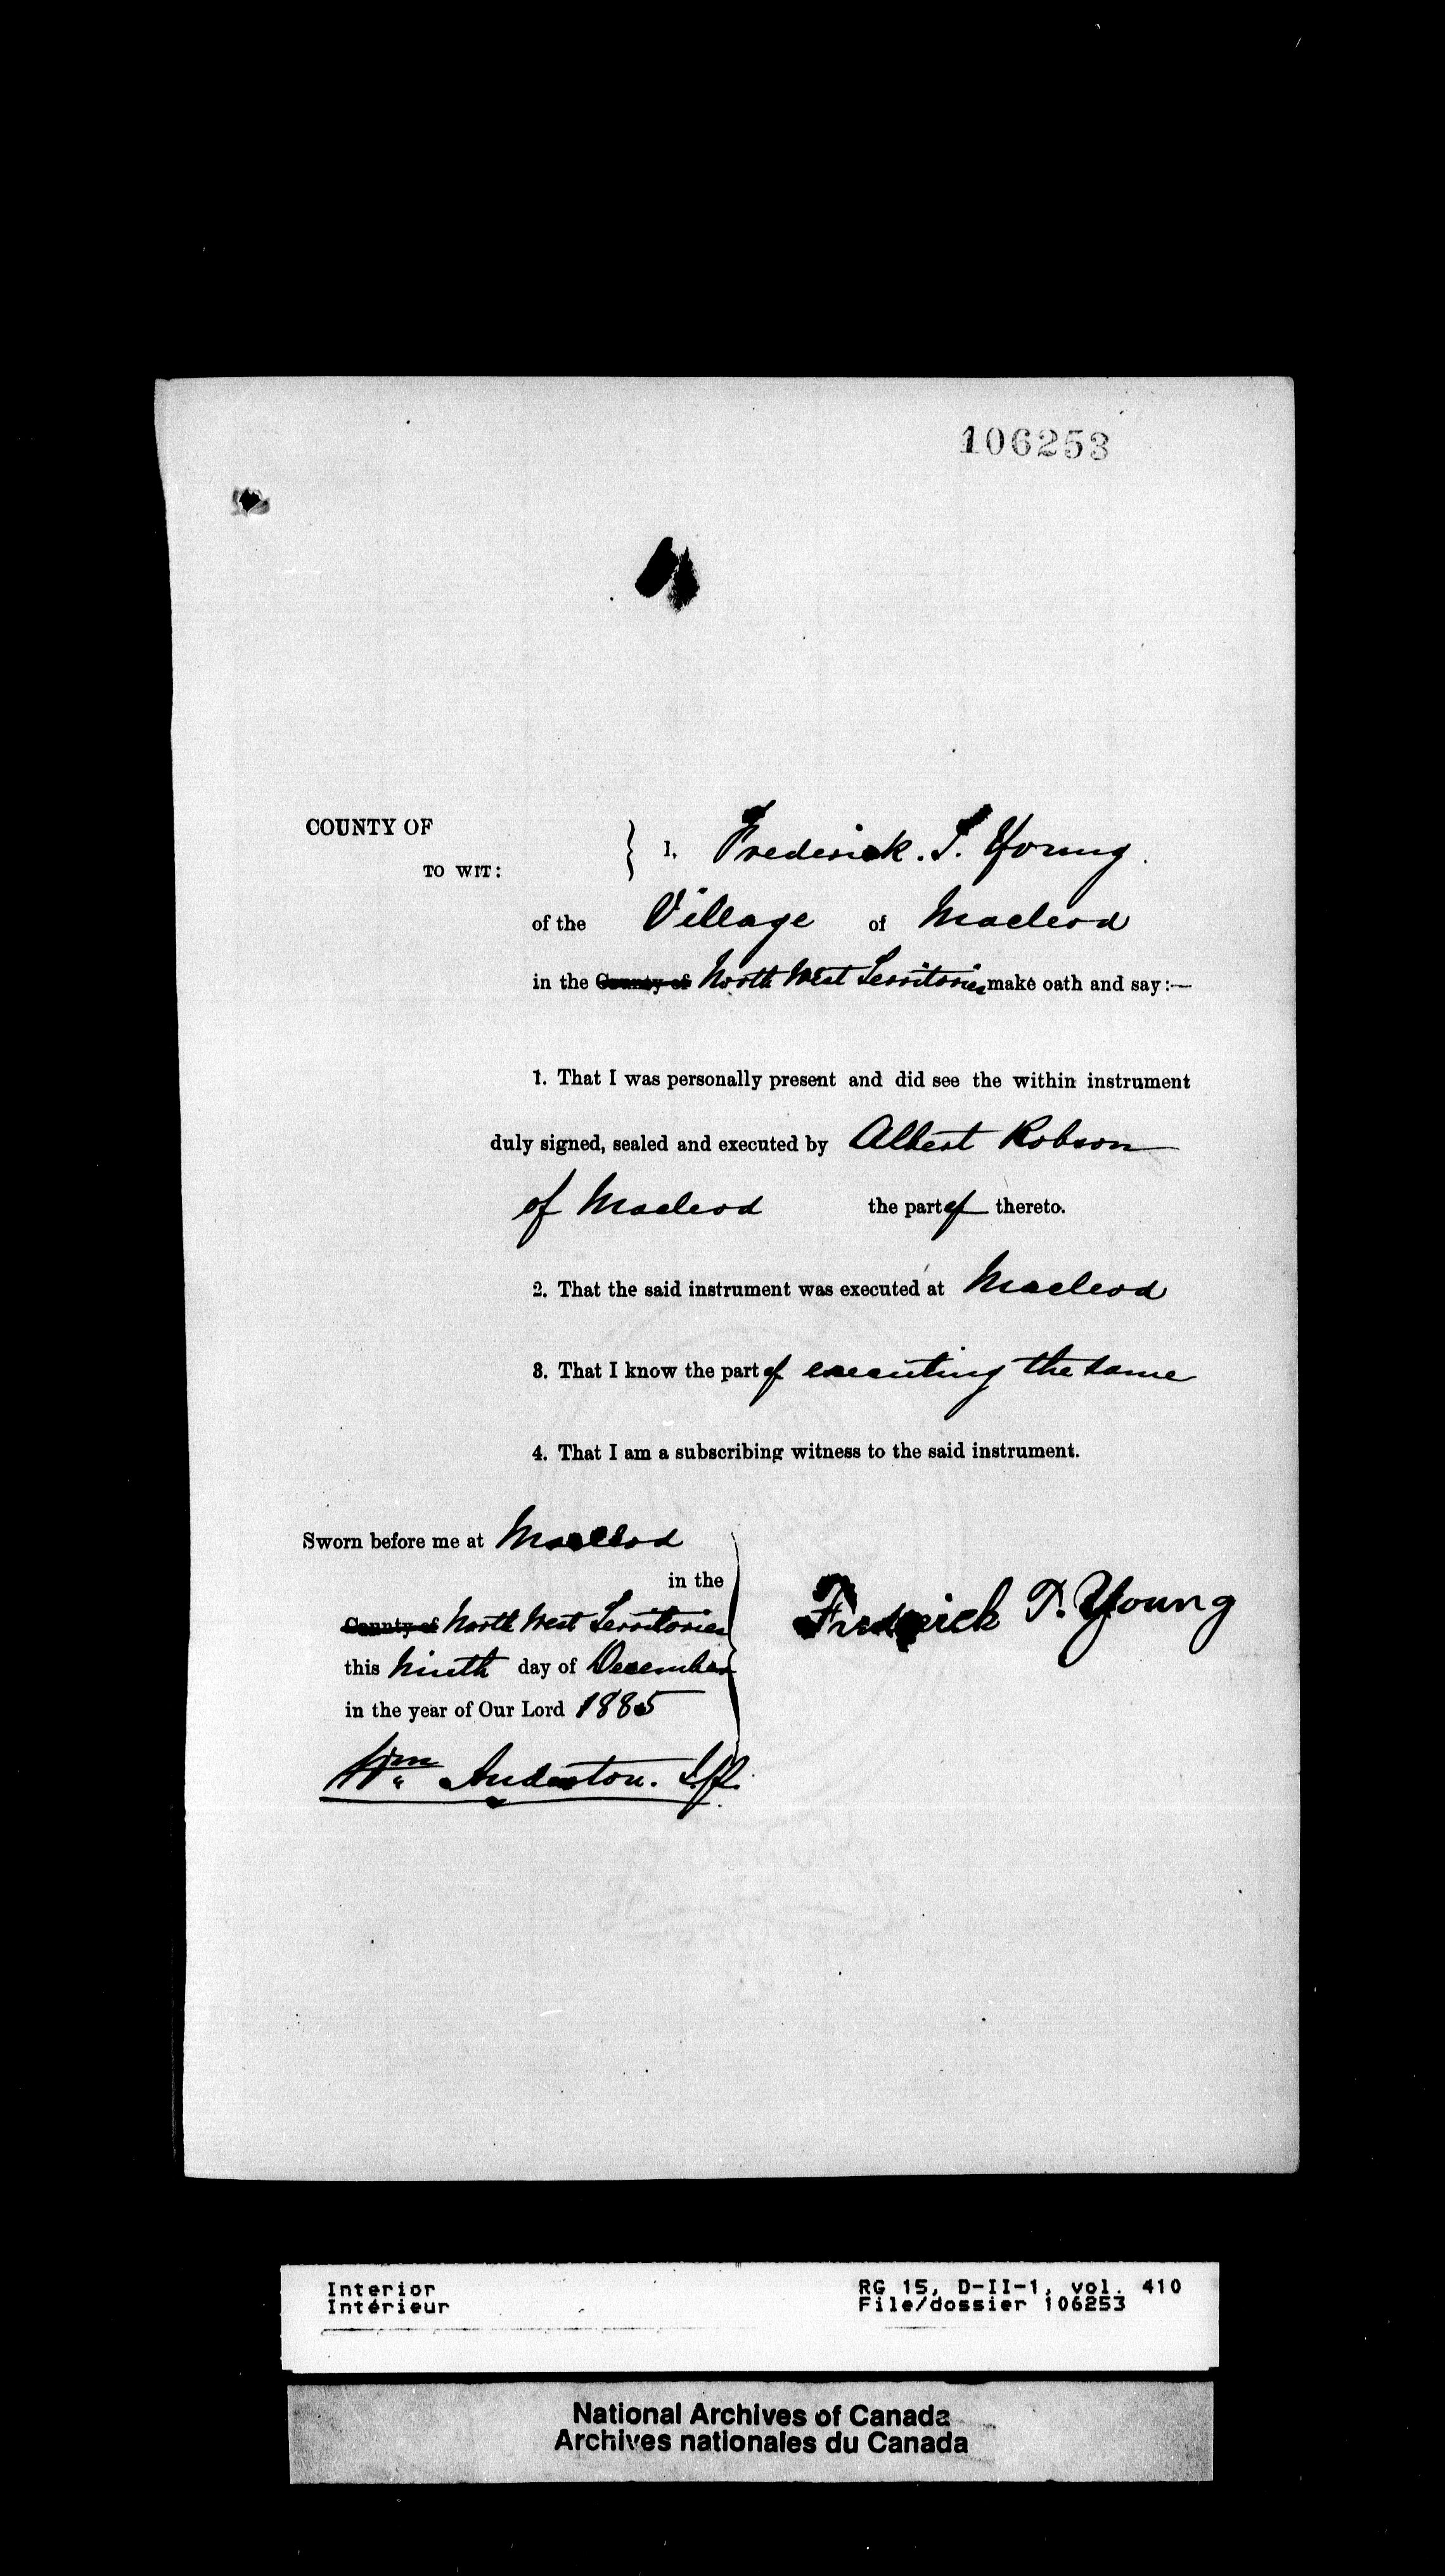 106253
COUNTY OF
TO WIT:
I, Frederick. T. Young.
of the Village of Macleod
in the County of North West Territories make oath and say:—
1. That I was personally present and did see the within instrument
duly signed, sealed and executed by Albert Robson
of Macleod the party thereto.
2. That the said instrument was executed at Macleod
3. That I know the party executing the same
4. That I am a subscribing witness to the said instrument.
Sworn before me at Macleod
in the
County of North West Territories
this Ninth day of December
in the year of Our Lord 1885
Frederick T. Young
Wm Anderton. J.P.
Interior
Intérieur
RG 15, D-II-1, vol. 410
File/dossier 106253
National Archives of Canada
Archives nationales du Canada